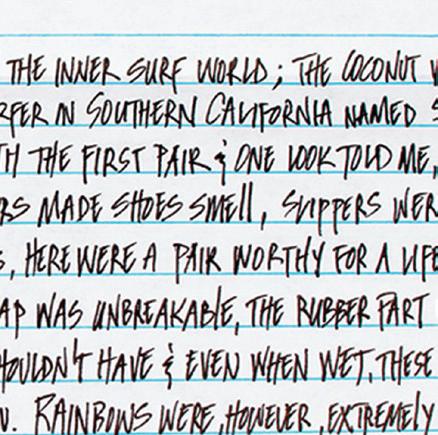 THE INNER SURF WORLD; THE COCONUT W
RFER IN SOUTHERN CALIFORNIA NAMED S
TH THE FIRST PAIR & ONE LOOK TOLD ME,
RS MADE SHOES SMELL, SLIPPERS WER
S, HERE WERE A PAIR WORTHY FOR A LIFE
AP WAS UNBREAKABLE, THE RUBBER PART
HOULDN'T HAVE & EVEN WHEN WET, THESE
N. RAINBOWS WERE, HOWEVER, EXTREMELY